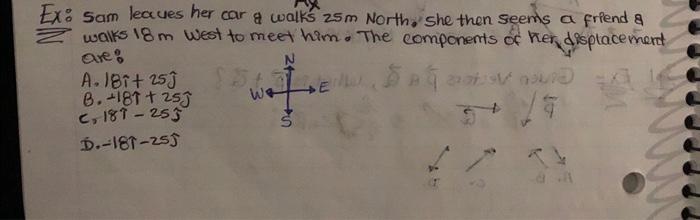 Ex: Sam leaves her car & walks 25m North. She then seems a friend &
walks 18m West to meet him. The components of her displacement
are:
A. 18î + 25ĵ
B. -18î + 25ĵ
C. 18î - 25ĵ
D. -18î - 25ĵ
N
W E
S